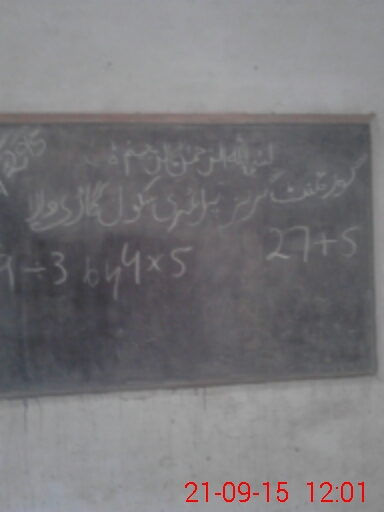 بسم اللہ الرحمن الرحیم
گورنمنٹ گرلز پرائمری سکول گاڑی والا
27+5
9÷3 by 4×5
21-09-15 12:01